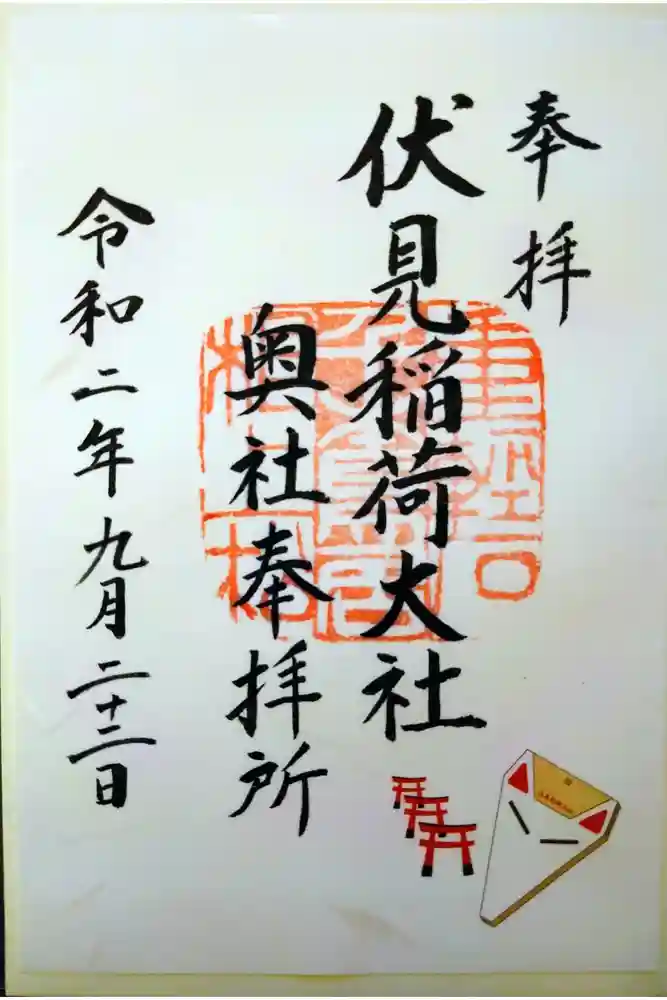 奉拝
伏見稲荷大社
奥社奉拝所
令和二年九月二十二日